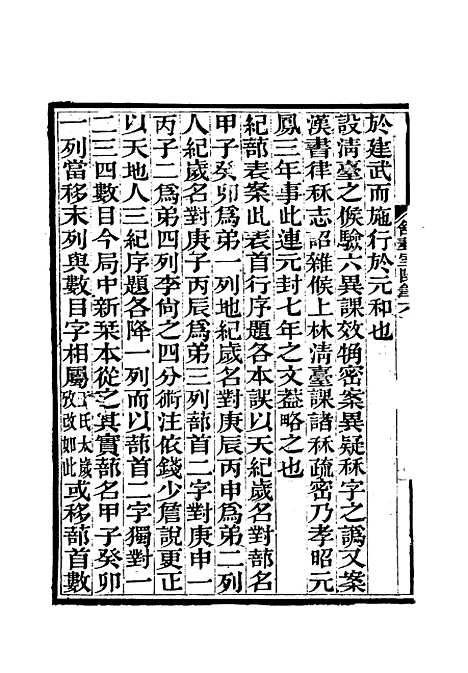 於建武而施行於元和也
設淸臺之候驗六異課效觕密案異疑秝字之譌又案
漢書律秝志詔雜候上林淸臺課諸秝疏密乃孝昭元
鳳三年事此連元封七年之文葢略之也
紀部表案此表首行序題各本誤以天紀歲名對部名
甲子癸卯爲弟一列地紀歲名對庚辰丙申爲弟二列
人紀歲名對庚子丙辰爲弟三列部首二字對庚申一
丙子二爲弟四列李尙之四分術注依錢少詹說更正
以天地人三紀序題各降一列而以部首二字獨對一
二三四數目今局中新栞本從之其實部名甲子癸卯
一列當移末列與數目字相屬王氏太歲攷改如此或移部首數